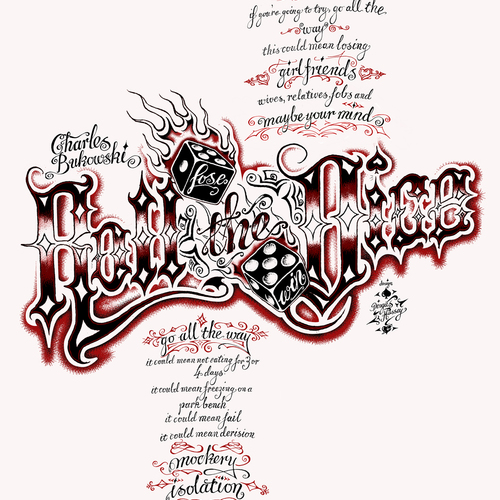 if you're going to try, go all the
way
this could mean losing
girlfriends
wives, relatives, jobs and
maybe your mind
Charles
Bukowski
Roll the Dice
lose
win
design
go all the way
it could mean not eating for 3 or
4 days
it could mean freezing on a
park bench
it could mean jail
it could mean derision
mockery
isolation